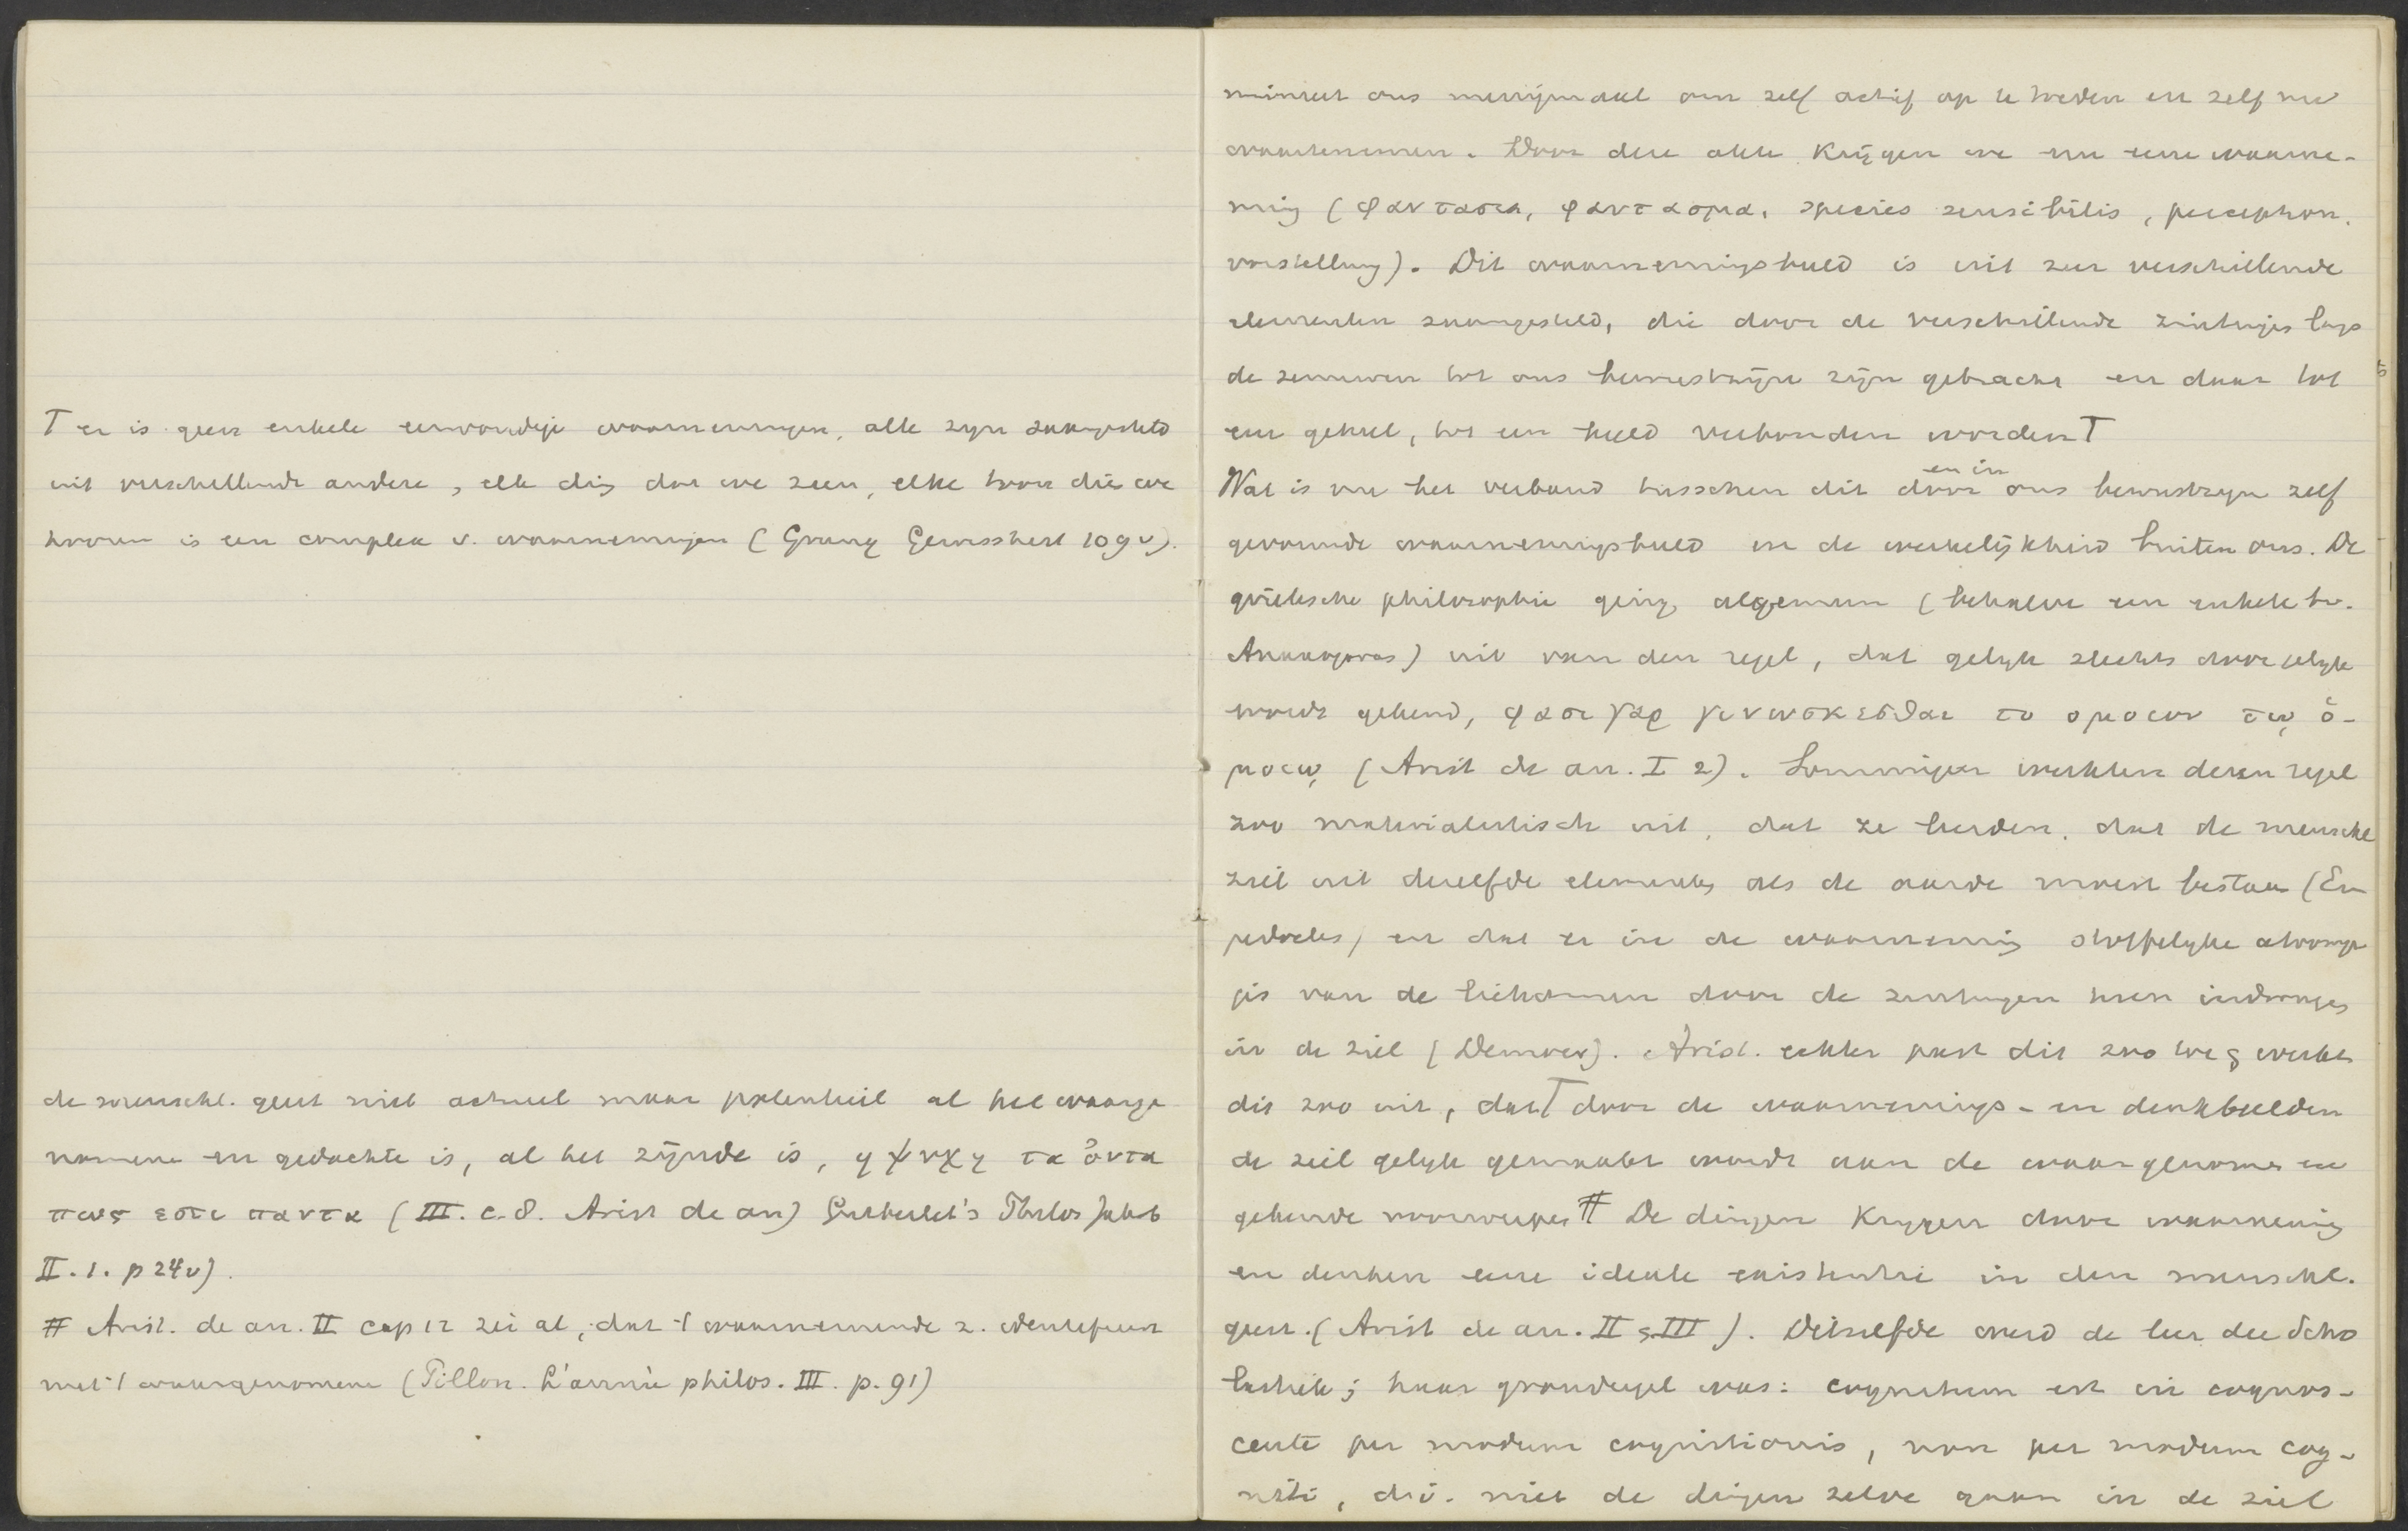 T er is geen enkele eenvoudige waarnemingen, alle zijn saamgesteld
uit verschillende andere, elk ding dat we zien, elke toon die we
hooren is een complex v. waarnemingen (Grung Gewissheit 109 v).
de menschl. geest niet actueel maar potentieel al het waarge
nomene en gedachte is, al het zijnde is, η ψυχη τα ὀντα
πως εστι παντα (III. c. 8. Arist de an) Gutberlet's Philos Jahrb
II. 1. p 24 v).
# Arist. de an. II cap 12 zei al, dat 't waarnemende z. identifieert
met 't waargenomene (Pillon. L'année philos. III. p. 91)
minstens ons menigmaal om zelf actief op te treden en zelf mee
waartenemen. Door deze akte krijgen we nu eene waarne-
ming (φαντασια, φαντασμα, species sensibilis, perception,
vorstellung). Dit waarnemingsbeeld is uit zeer verschillende
elementen saamgesteld, die door de verschillende zintuigen langs
de zenuwen tot ons bewustzijn zijn gebracht en daar tot
een geheel, tot een beeld verbonden worden T
en in
Wat is nu het verband tusschen dit door ons bewustzijn zelf
gevormde waarnemingsbeeld en de werkelijkheid buiten ons. De
grieksche philosophie ging algemeen (behalve een enkele bv.
Anaxagoras) uit van den regel, dat gelijk slechts door gelijk
wordt gekend, φασι γαρ γινωσκεσθαι το ομοιον τῳ ὁ-
μοιῳ (Arist de an. I 2). Sommigen werkten dezen regel
zoo materialistisch uit, dat ze leerden, dat de menschl
ziel uit dezelfde elementen als de aarde moest bestaan (Em
pedocles) en dat er in de waarneming stoffelijke
van de lichamen door de zintuigen heen indrongen
in de ziel (Democr). Arist. echter past dit zoo toe & werkt
dit zoo uit, dat T door de waarnemings- en denkbeelden
de ziel gelijk gemaakt wordt aan de waargenomen en
gekende voorwerpen # De dingen krijgen door waarneming
en denken eene ideale existentie in den menschl.
geest. (Arist de an. II & III). Ditzelfde werd de leer der Scho
lastiek; haar grondregel was: cognitum est in cognos-
cente per modum cognitionis, non per modum cog-
niti, d.i. niet de dingen zelve gaan in de ziel